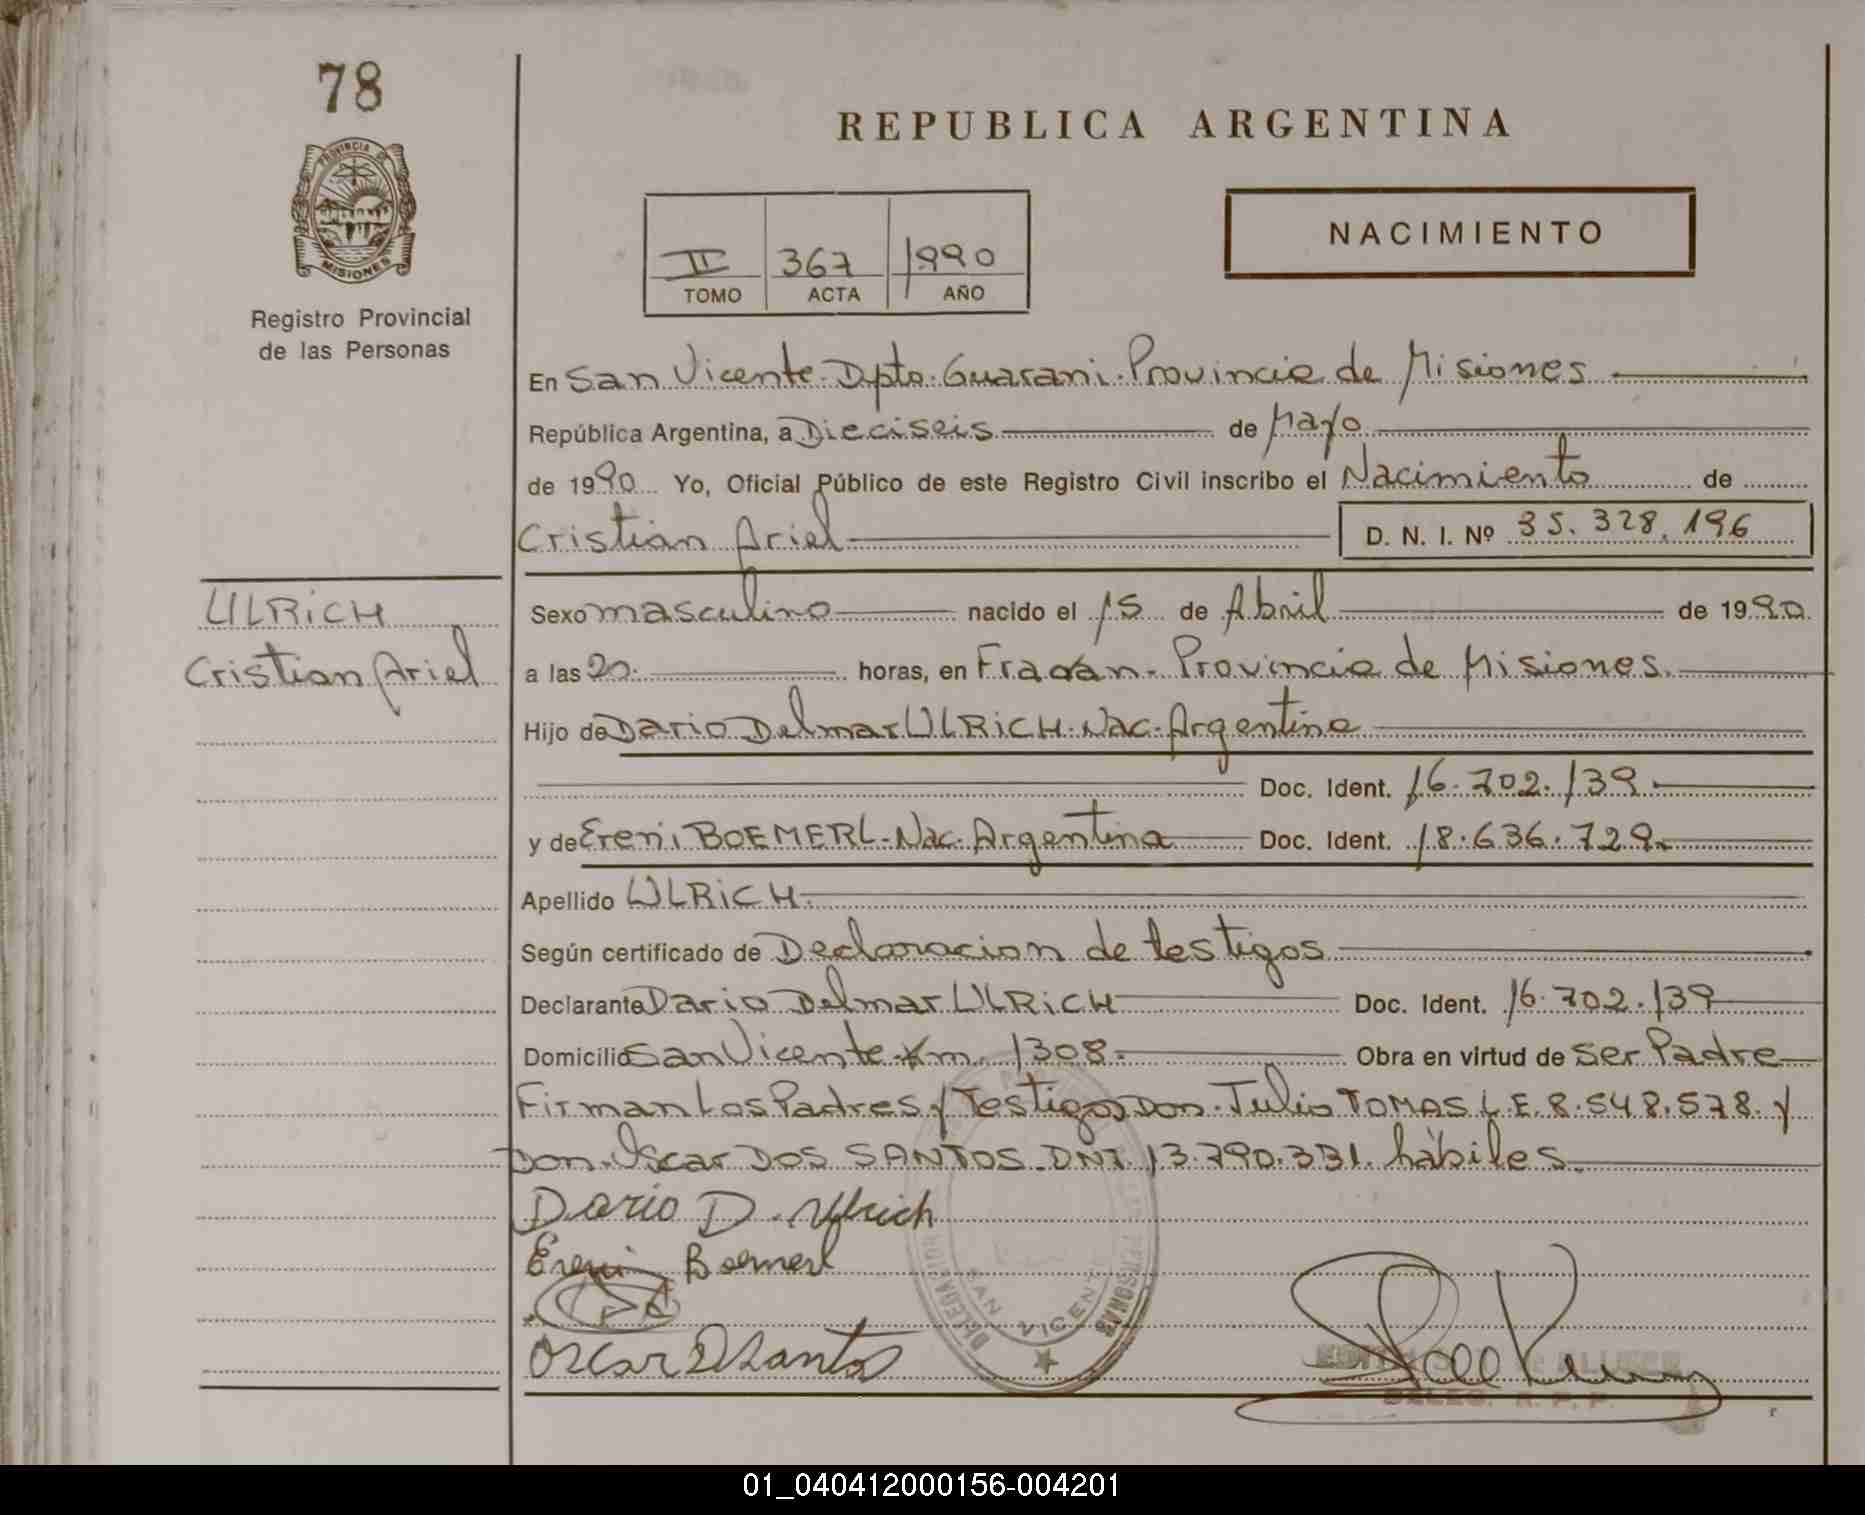 78
REPUBLICA ARGENTINA
PROVINCIA DE
MISIONES
Registro Provincial
de las Personas
II 367 1990
TOMO ACTA AÑO
NACIMIENTO
En San Vicente. Dpto. Guarani. Provincia de Misiones
República Argentina, a Dieciseis de Mayo
de 1990 Yo, Oficial Público de este Registro Civil inscribo el Nacimiento de
Cristian Ariel D. N. I. Nº 35.328.196
ULRICH
Cristian Ariel
Sexo masculino nacido el 15 de Abril de 1990
a las 20. horas, en Fracán. Provincia de Misiones.
Hijo de Dario Delmar ULRICH. Nac. Argentina
Doc. Ident. 16.702.139
y de Ereni BOEMERL. Nac. Argentina Doc. Ident. 18.636.729
Apellido ULRICH
Según certificado de Declaracion de testigos
Declarante Dario Delmar ULRICH Doc. Ident. 16.702.139
Domicilio San Vicente Km. 1308. Obra en virtud de ser Padre
Firman Los Padres y Testigos Don. Julio TOMAS L.E. 8.548.578. y
Don. Oscar DOS SANTOS. DNI. 13.790.331. hábiles.
Dario D. Ulrich
Ereni Boemerl
Oscar D Santos
SAN VICENTE
DELEG. R. P. P.
01_040412000156-004201